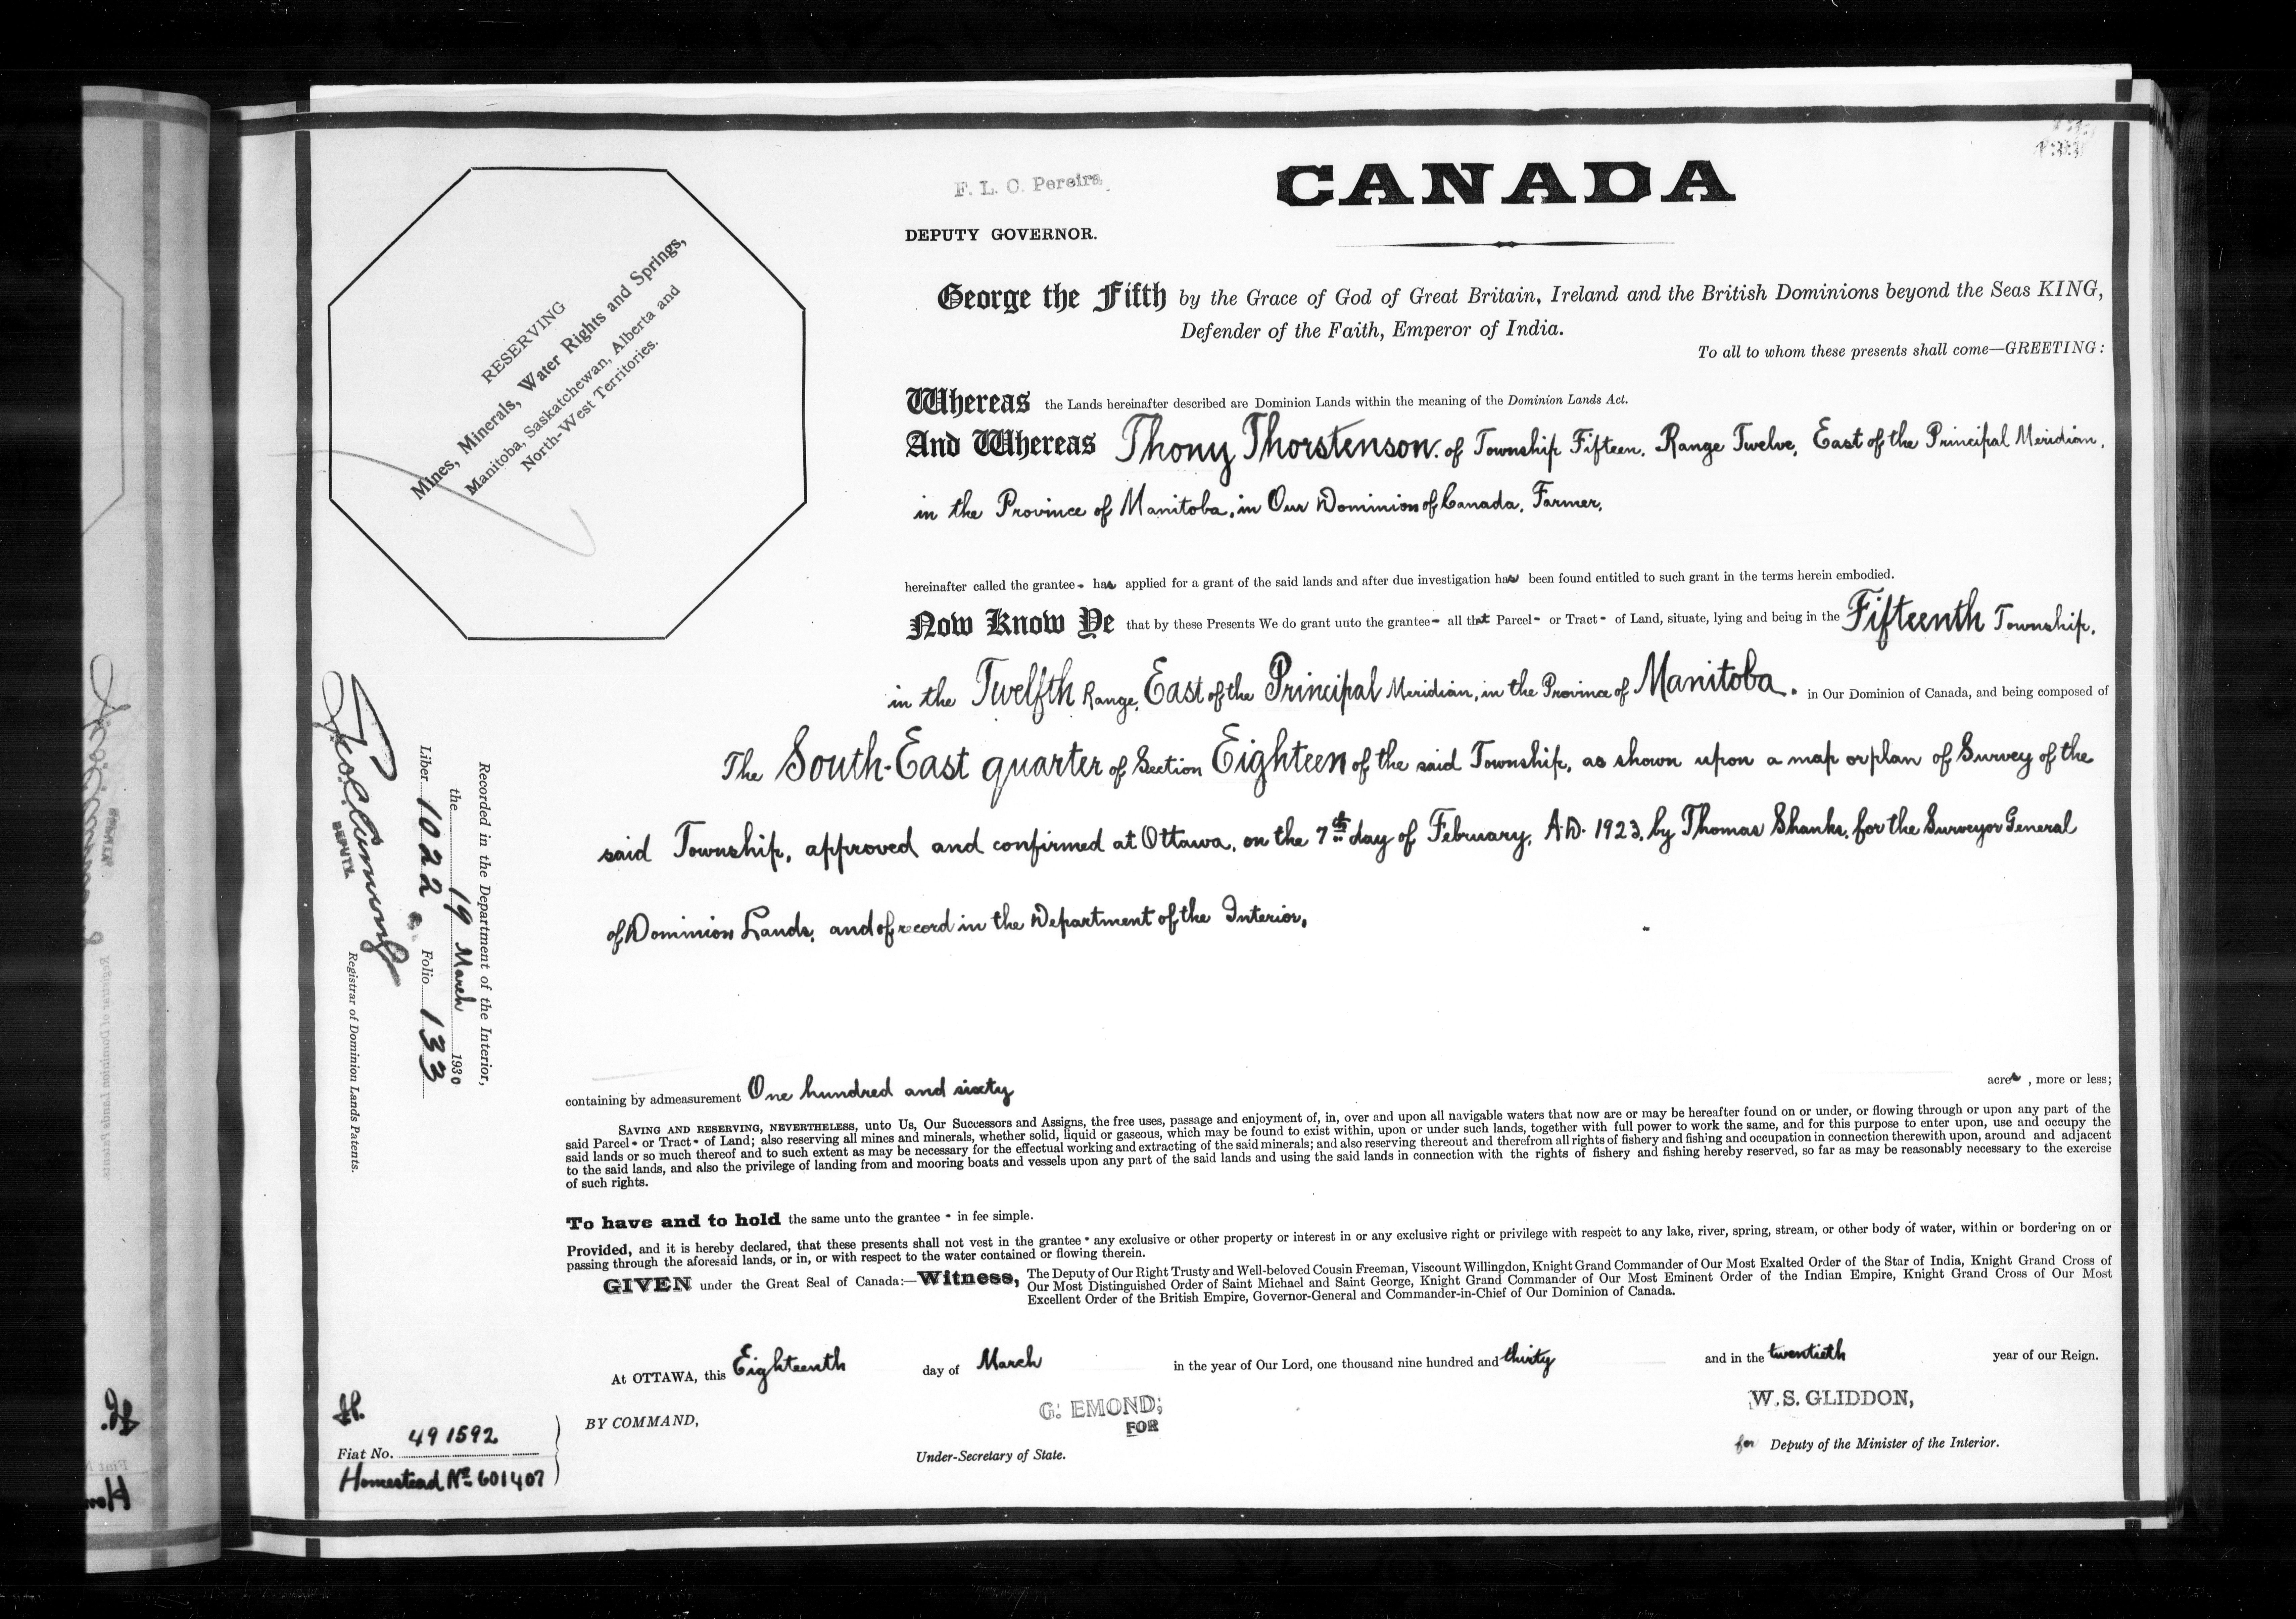 F. L. C. Pereira.
DEPUTY GOVERNOR.
CANADA
RESERVING
Mines, Minerals, Water Rights and Springs,
Manitoba, Saskatchewan, Alberta and
North-West Territories.
George the Fifth by the Grace of God of Great Britain, Ireland and the British Dominions beyond the Seas KING,
Defender of the Faith, Emperor of India.
To all to whom these presents shall come—GREETING:
Whereas the Lands hereinafter described are Dominion Lands within the meaning of the Dominion Lands Act.
And Whereas Thony Thorstenson. of Township Fifteen, Range Twelve, East of the Principal Meridian,
in the Province of Manitoba, in Our Dominion of Canada, Farmer,
hereinafter called the grantee - has applied for a grant of the said lands and after due investigation has been found entitled to such grant in the terms herein embodied.
Now Know Ye that by these Presents We do grant unto the grantee - all that Parcel - or Tract - of Land, situate, lying and being in the Fifteenth Township,
in the Twelfth Range, East of the Principal Meridian, in the Province of Manitoba. in Our Dominion of Canada, and being composed of
The South-East quarter of Section Eighteen of the said Township, as shown upon a map or plan of Survey of the
said Township, approved and confirmed at Ottawa, on the 7th day of February, A.D. 1923, by Thomas Shanks, for the Surveyor General
of Dominion Lands, and of record in the Department of the Interior,
containing by admeasurement One hundred and sixty acres, more or less;
SAVING AND RESERVING, NEVERTHELESS, unto Us, Our Successors and Assigns, the free uses, passage and enjoyment of, in, over and upon all navigable waters that now are or may be hereafter found on or under, or flowing through or upon any part of the
said Parcel - or Tract - of Land; also reserving all mines and minerals, whether solid, liquid or gaseous, which may be found to exist within, upon or under such lands, together with full power to work the same, and for this purpose to enter upon, use and occupy the
said lands or so much thereof and to such extent as may be necessary for the effectual working and extracting of the said minerals; and also reserving thereout and therefrom all rights of fishery and fishing and occupation in connection therewith upon, around and adjacent
to the said lands, and also the privilege of landing from and mooring boats and vessels upon any part of the said lands and using the said lands in connection with the rights of fishery and fishing hereby reserved, so far as may be reasonably necessary to the exercise
of such rights.
To have and to hold the same unto the grantee - in fee simple.
Provided, and it is hereby declared, that these presents shall not vest in the grantee - any exclusive or other property or interest in or any exclusive right or privilege with respect to any lake, river, spring, stream, or other body of water, within or bordering on or
passing through the aforesaid lands, or in, or with respect to the water contained or flowing therein.
GIVEN under the Great Seal of Canada:—Witness, The Deputy of Our Right Trusty and Well-beloved Cousin Freeman, Viscount Willingdon, Knight Grand Commander of Our Most Exalted Order of the Star of India, Knight Grand Cross of
Our Most Distinguished Order of Saint Michael and Saint George, Knight Grand Commander of Our Most Eminent Order of the Indian Empire, Knight Grand Cross of Our Most
Excellent Order of the British Empire, Governor-General and Commander-in-Chief of Our Dominion of Canada.
At OTTAWA, this Eighteenth day of March in the year of Our Lord, one thousand nine hundred and thirty and in the twentieth year of our Reign.
BY COMMAND,
G. EMOND,
FOR
Under-Secretary of State.
W. S. GLIDDON,
for Deputy of the Minister of the Interior.
H.
Fiat No. 491592
Homestead No. 601407
Recorded in the Department of the Interior,
the 19 March 1930
Liber 1022 Folio 133
DEPUTY
Registrar of Dominion Lands Patents.